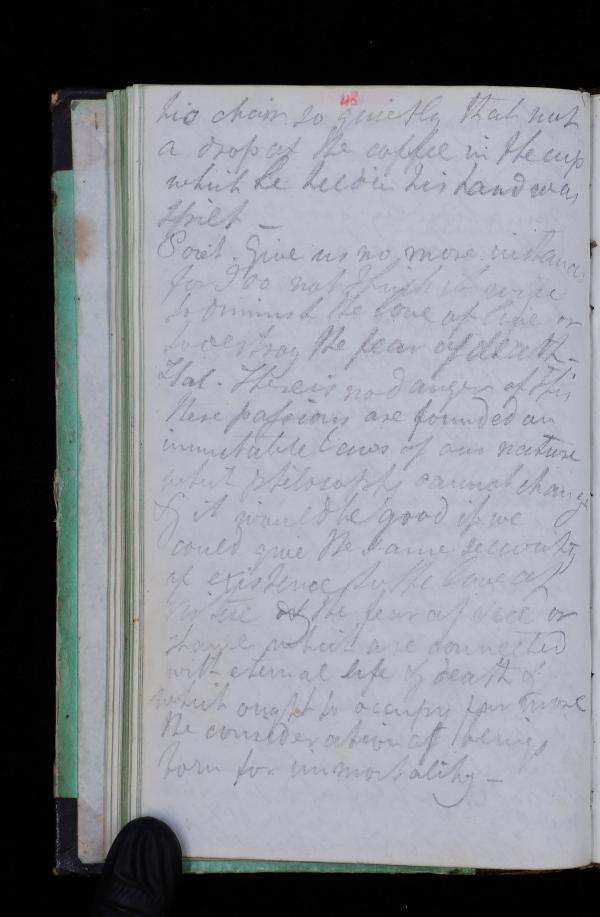 48
his chair so quietly that not
a drop of the coffee in the cup
which he held in his hand was
spilt _
Poiet. Give us no more instances
for I do not think it wise
to diminish the love of life or
to destroy the fear of death _
Hal. There is no danger of this
these passions are founded on
immutable laws of our nature
which philosophy cannot change
& it would be good if we
could give the same security
of existence to the love of
virtue & the fear of vice or
shame which are connected
with eternal life & death &
which ought to occupy far more
the consideration of beings
born for immortality _